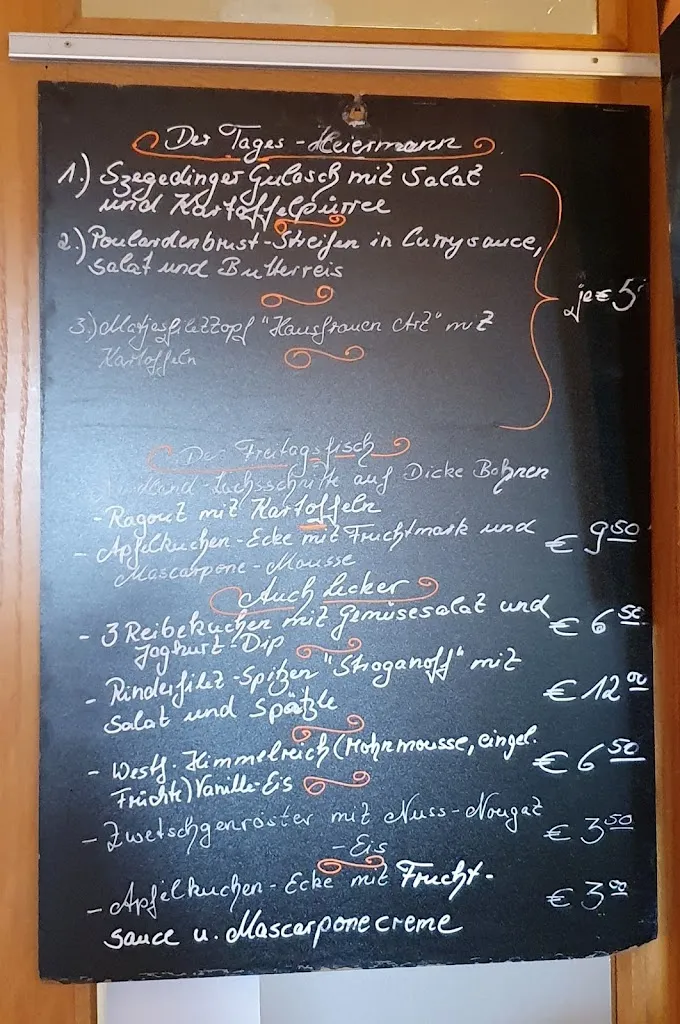 Der Tages - Heiermann
1.) Szegedinger Gulasch mit Salat
und Kartoffelpürree
2.) Poulardenbrust-Streifen in Currysauce,
Salat und Butterreis
je € 5
3.) Matjesfiletzopf "Hausfrauen Art" mit
Kartoffeln
Der Freitagsfisch
Lachsschnitte auf Dicke Bohnen
- Ragout mit Kartoffeln
- Apfelkuchen-Ecke mit Fruchtmark und € 9 50
Mascarpone-Mousse
Auch lecker
- 3 Reibekuchen mit Gemüsesalat und € 6 50
Joghurt-Dip
- Rinderfilet-Spitzen "Stroganoff" mit € 12 00
Salat und Spätzle
- Westf. Himmelreich (Mohnmousse, eingel. € 6 50
Früchte) Vanille-Eis
- Zwetschgenröster mit Nuss-Nougat € 3 50
-Eis
- Apfelkuchen-Ecke mit Frucht- € 3 00
sauce u. Mascarponecreme